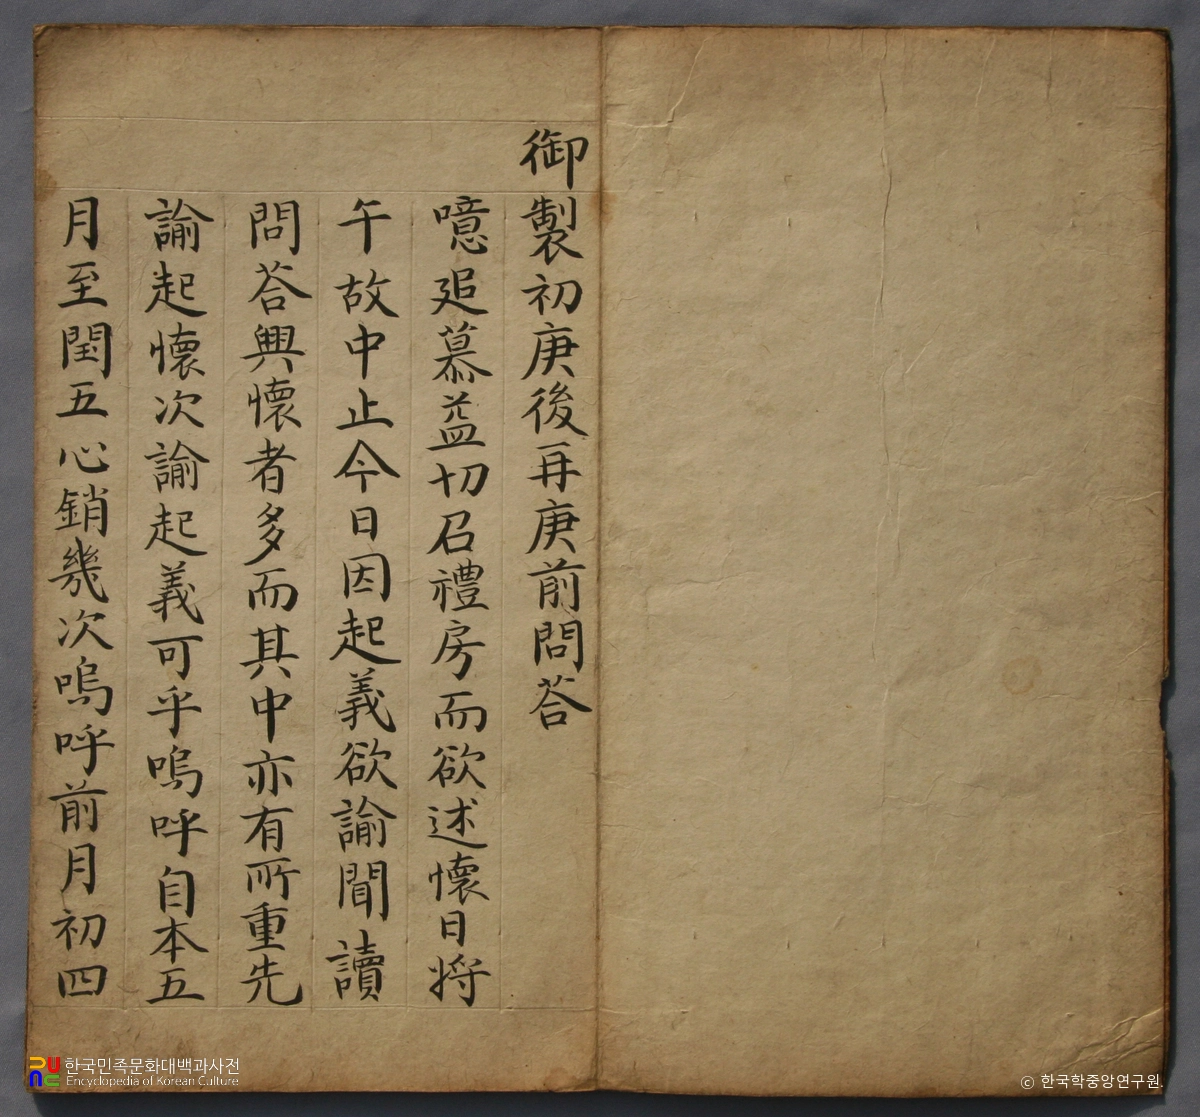 御製初庚後再庚前問荅
噫追慕益切召禮房而欲述懷日將
午故中止今日因起義欲諭聞讀
問荅興懷者多而其中亦有所重先
諭起懷次諭起義可乎嗚呼自本五
月至閏五心銷幾次嗚呼前月初四
한국민족문화대백과사전
Encyclopedia of Korean Culture
ⓒ 한국학중앙연구원.